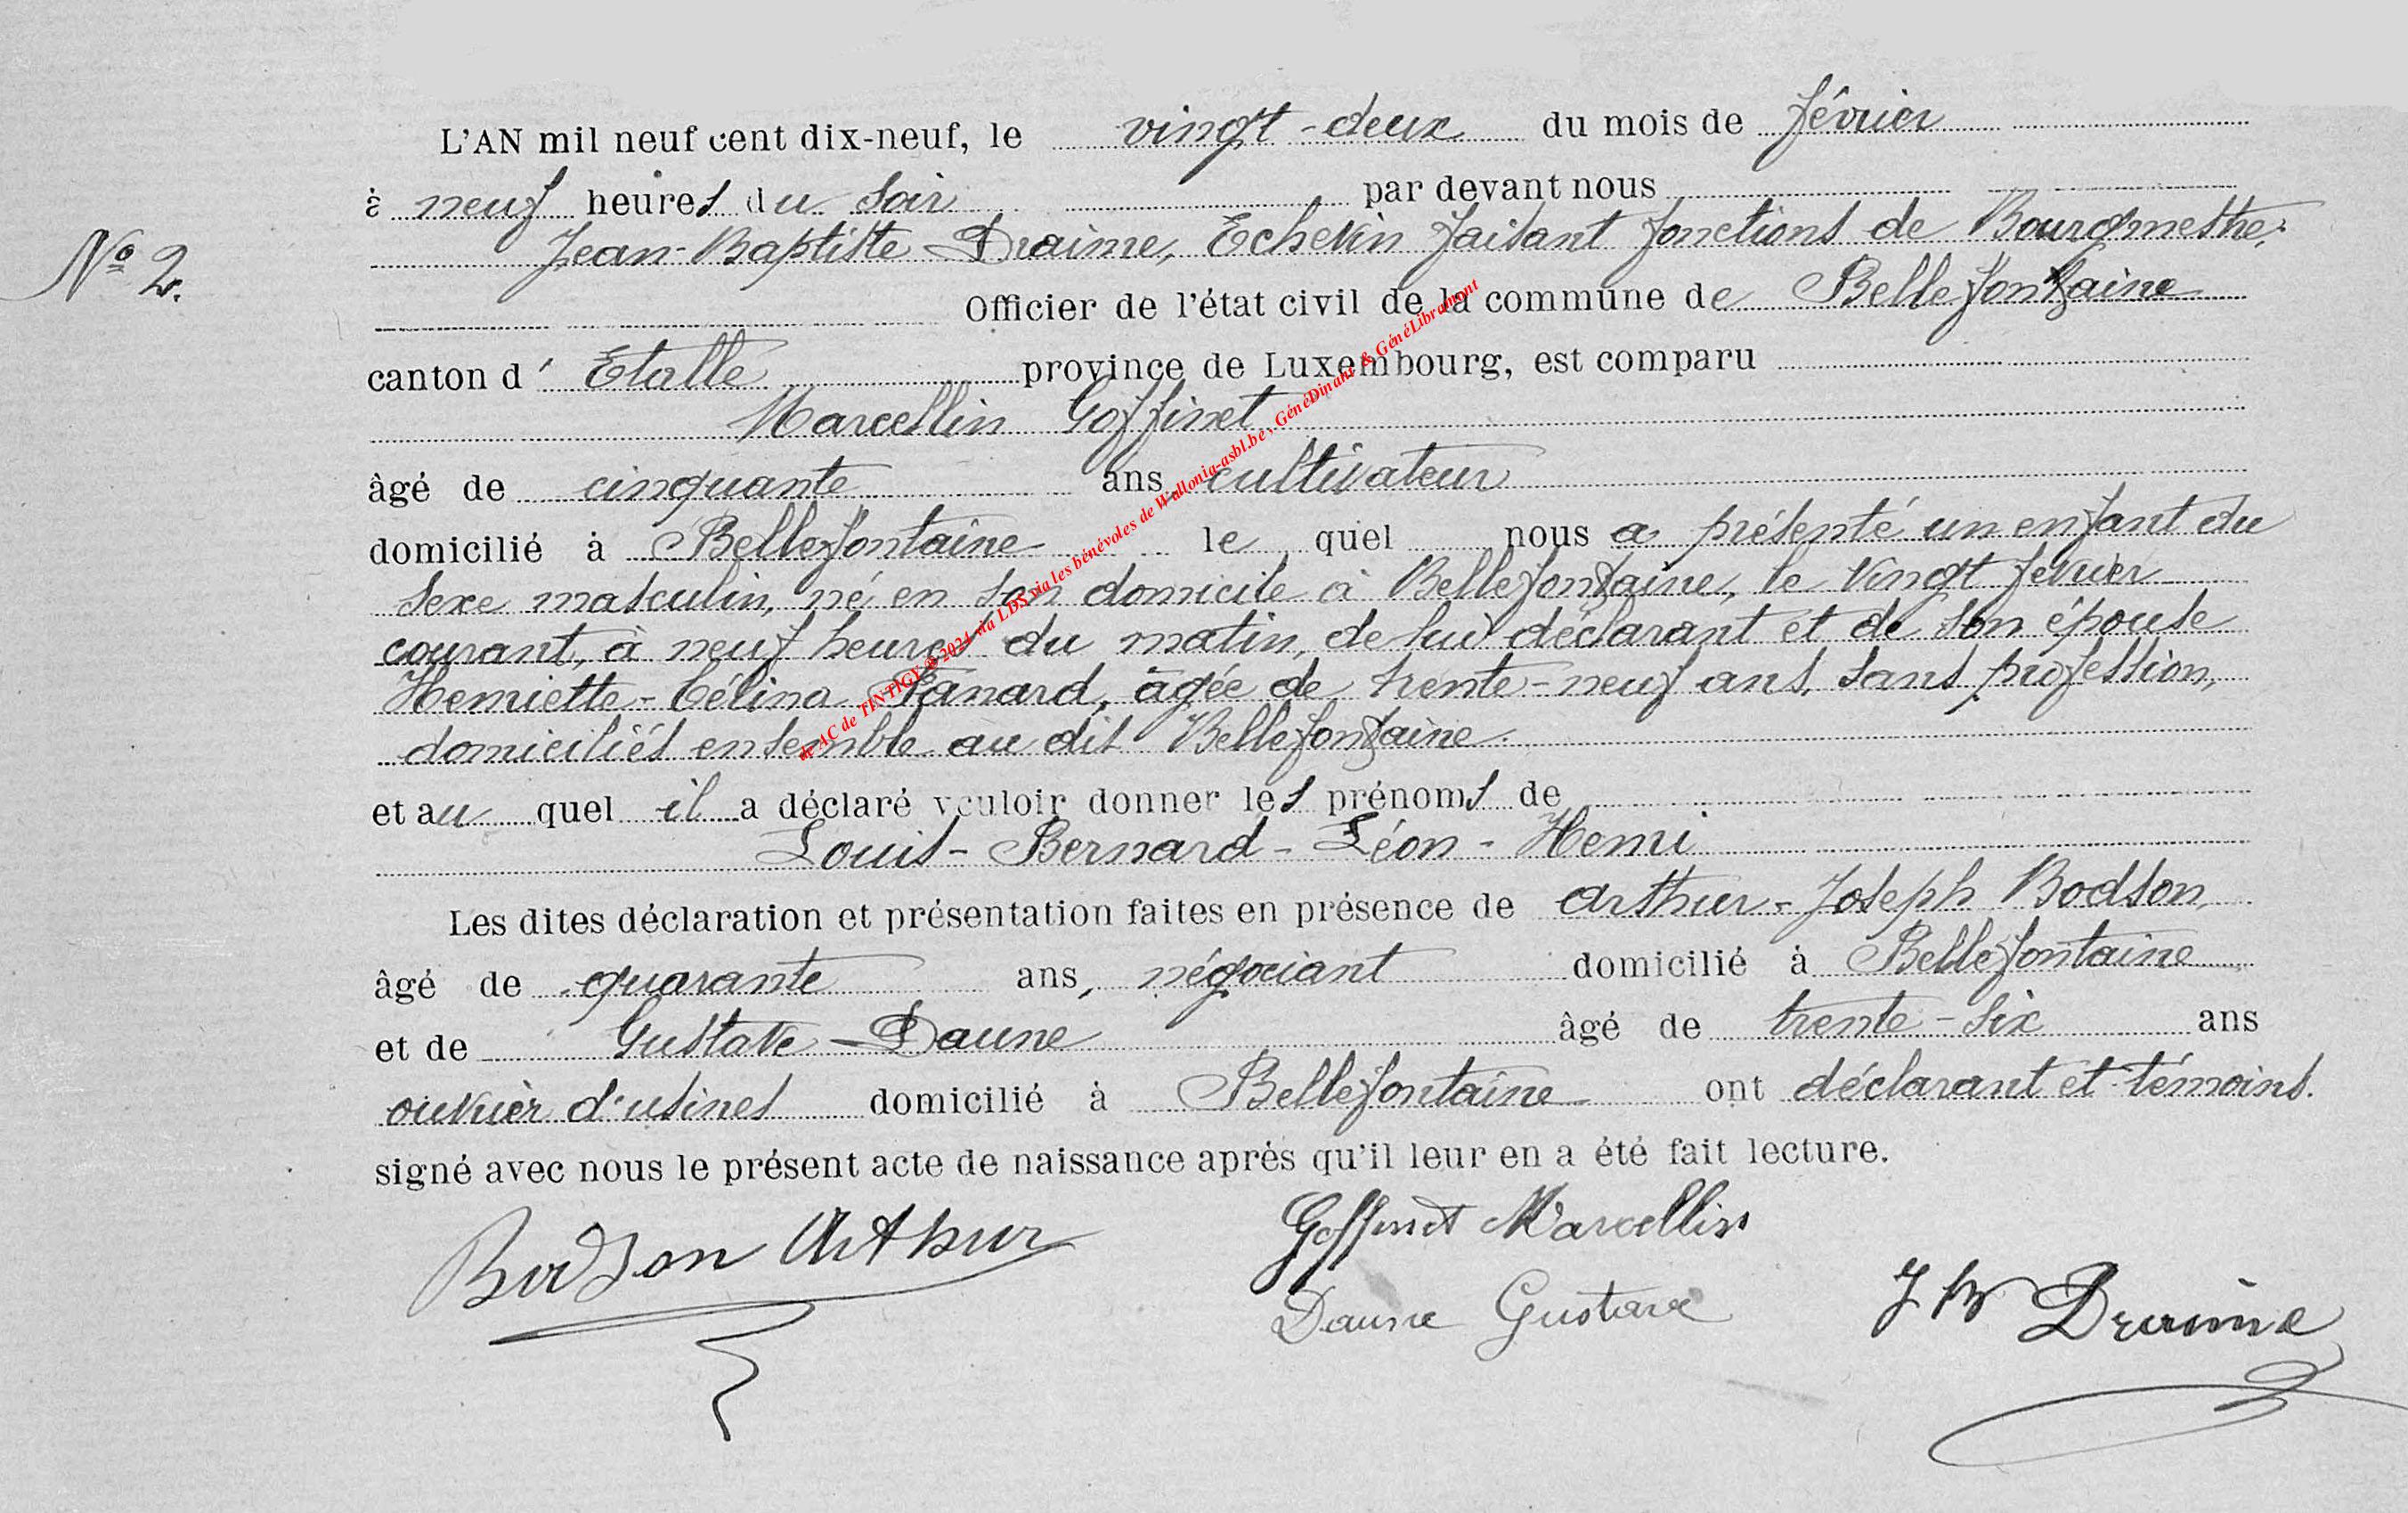 L'AN mil neuf cent dix-neuf, le vingt-deux du mois de février
à neuf heures du soir par devant nous
Jean-Baptiste Draime, Echevin faisant fonctions de Bourgmestre,
N° 2.
Officier de l'état civil de la commune de Bellefontaine
canton d'Etalle province de Luxembourg, est comparu
Marcellin Goffinet
âgé de cinquante ans cultivateur
domicilié à Bellefontaine le quel nous a présenté un enfant du
sexe masculin, né en son domicile à Bellefontaine, le vingt février
courant, à neuf heures du matin, de lui déclarant et de son épouse
Henriette-Célina Fanard, âgée de trente-neuf ans, sans profession,
domiciliés ensemble au dit Bellefontaine.
et au quel il a déclaré vouloir donner les prénoms de
Louis-Bernard-Léon-Henri
Les dites déclaration et présentation faites en présence de Arthur-Joseph Bodson,
âgé de quarante ans, négociant domicilié à Bellefontaine
et de Gustave Daune âgé de trente-six ans
ouvrier d'usines domicilié à Bellefontaine ont déclarant et témoins.
signé avec nous le présent acte de naissance après qu'il leur en a été fait lecture.
Bodson Arthur
Goffinet Marcellin
Daune Gustave
J B Draime
de AC de TINTIGY @ 2024 via LDS via les bénévoles de Wallonia-asbl.be, GénéDinant & GénéLibramont